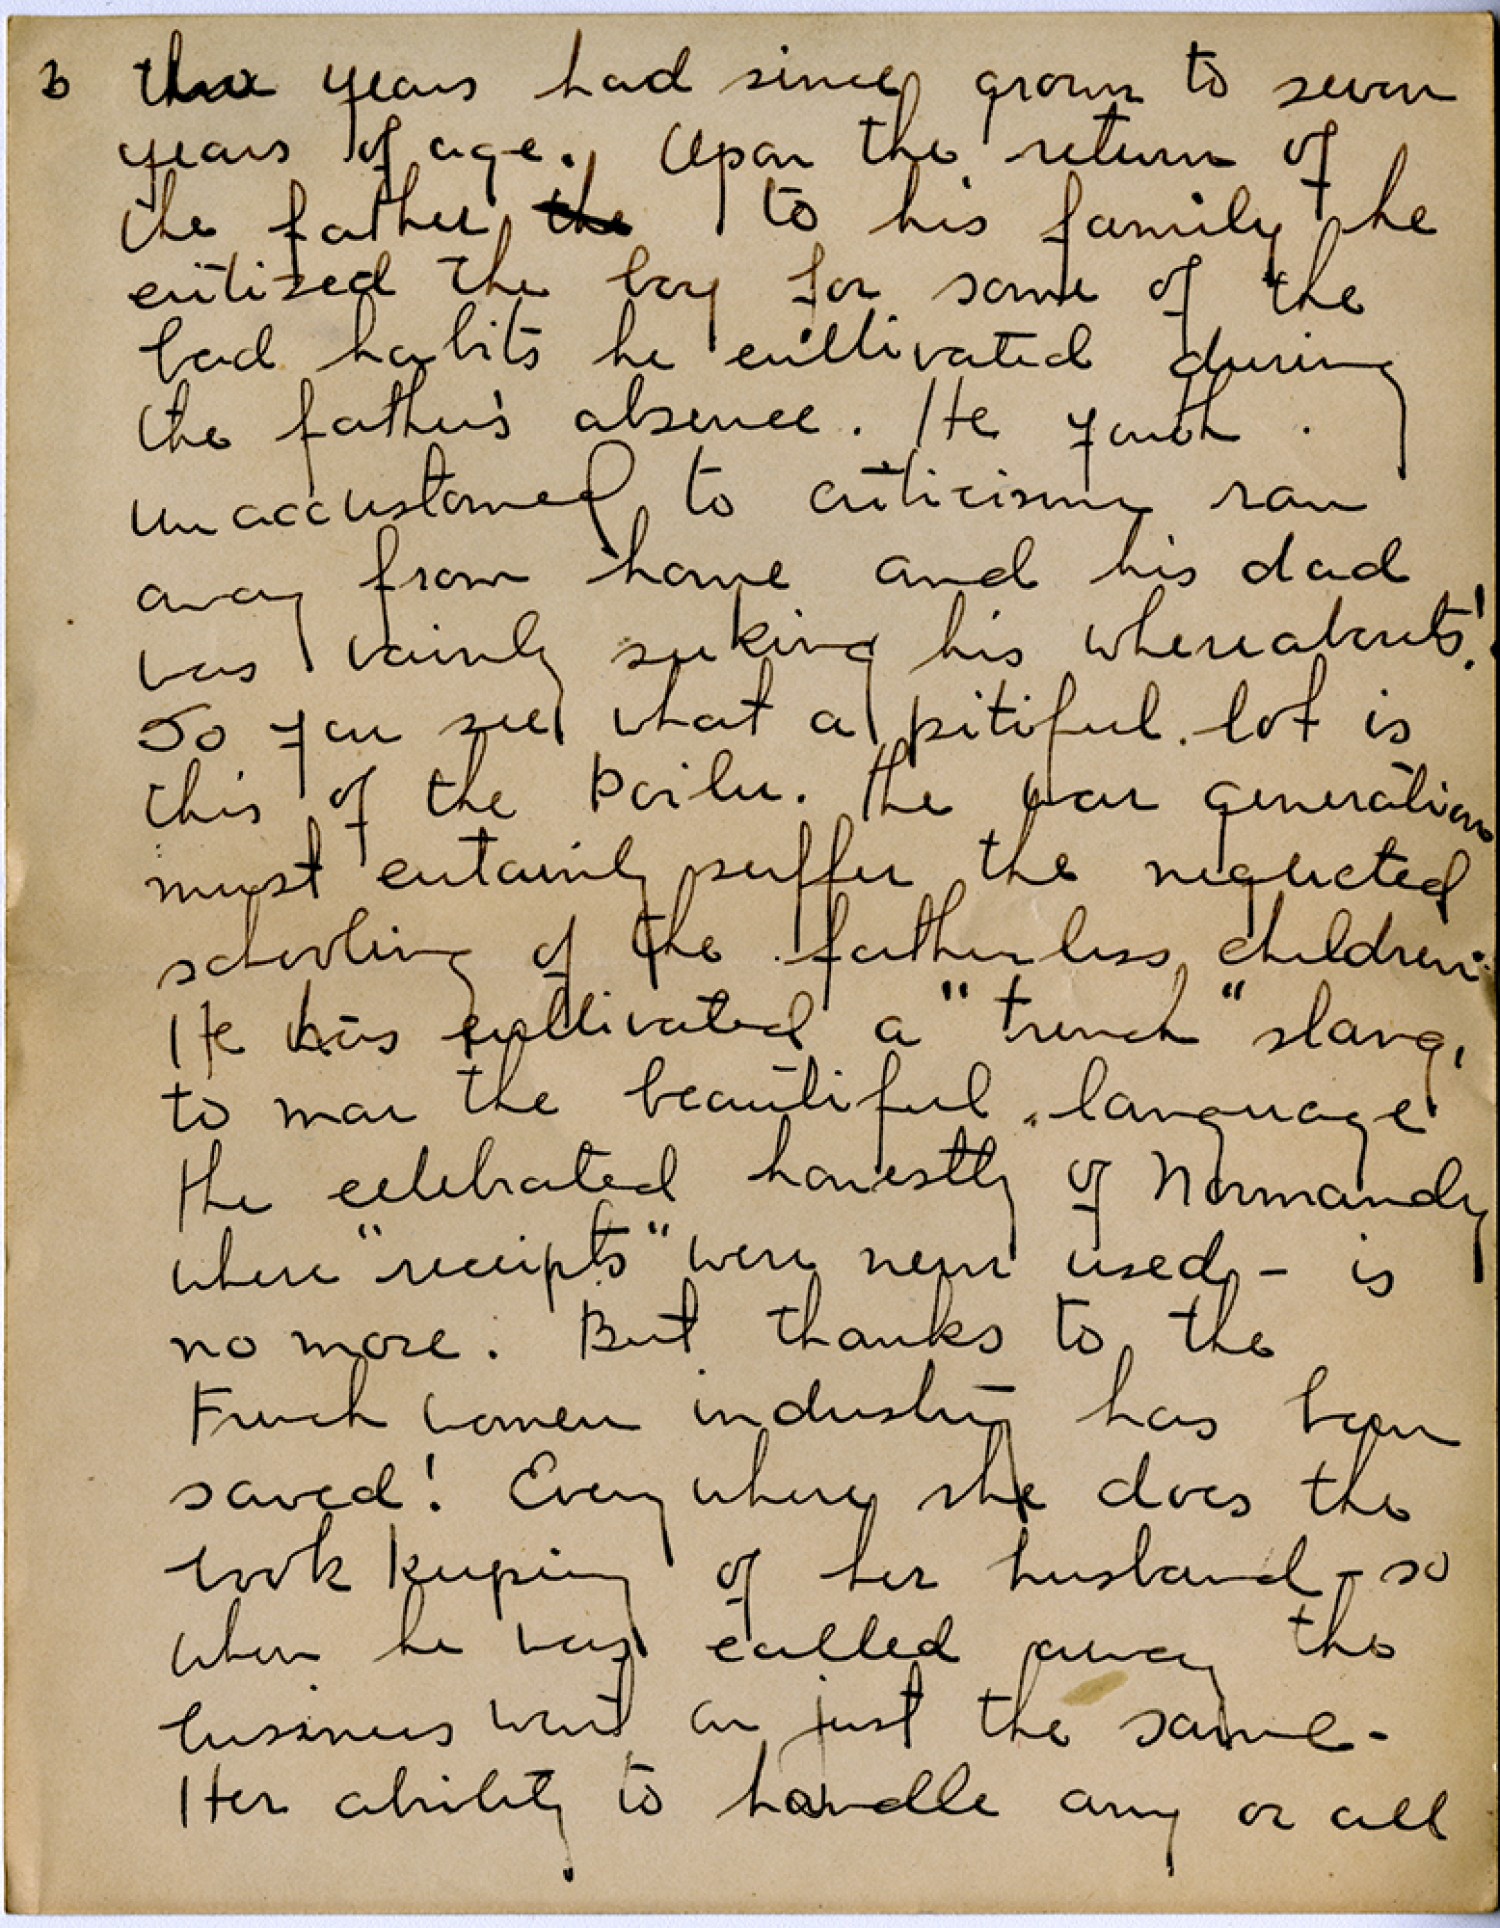 6 three years had since grown to seven
years of age. Upon the return of
the father the to his family he
critized the boy for some of the
bad habits he cultivated during
the father's absence. He youth.
unaccustomed to criticism ran
away from home and his dad
was vainly seeking his whereabouts!
So you see what a pitiful lot is
this of the Poilu. The war generation
must certainly suffer the neglected
schooling of the fatherless children.
He has cultivated a "trench" slang,
to mar the beautiful language
the celebrated honestly of Normandy
where "receipts" were never used - is
no more. But thanks to the
French women industry has been
saved! Everywhere she does the
book keeping of her husband - so
when he was called away the
business went on just the same -
Her ability to handle any or all